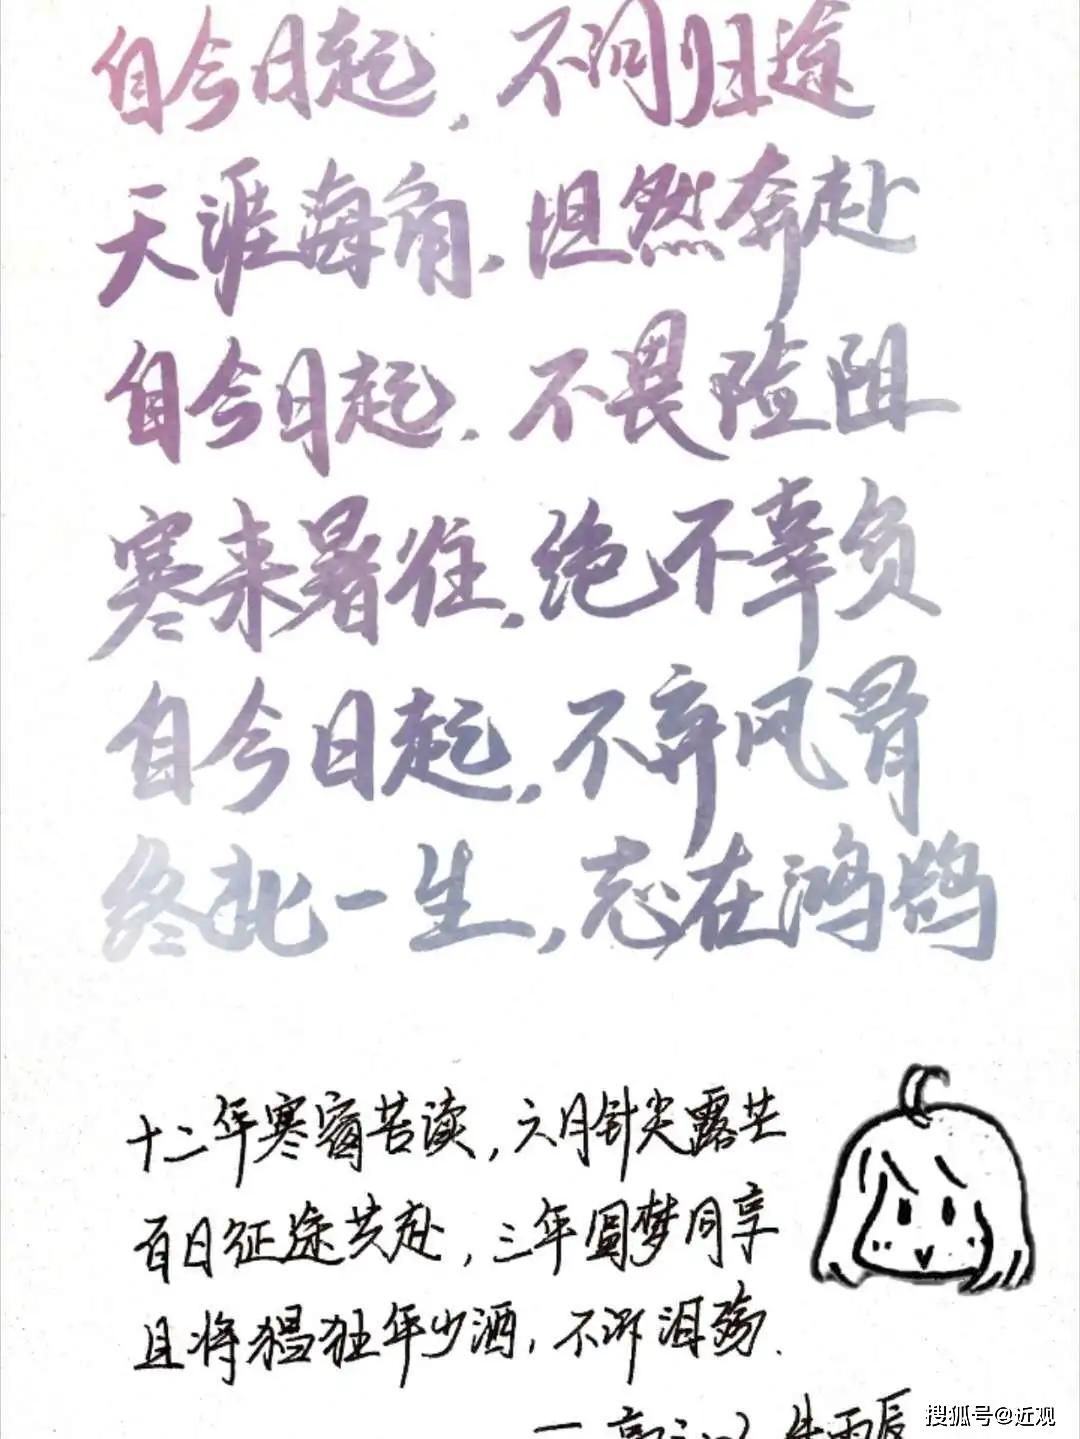 自今日起，不问归途
天涯海角，坦然奔赴
自今日起，不畏险阻
寒来暑往，绝不辜负
自今日起，不弃风骨
终此一生，志在鸿鹄
十二年寒窗苦读，六月针尖露芒
百日征途共赴，三年圆梦同享
且将猖狂年少酒，不诉泪殇.
搜狐号@近观